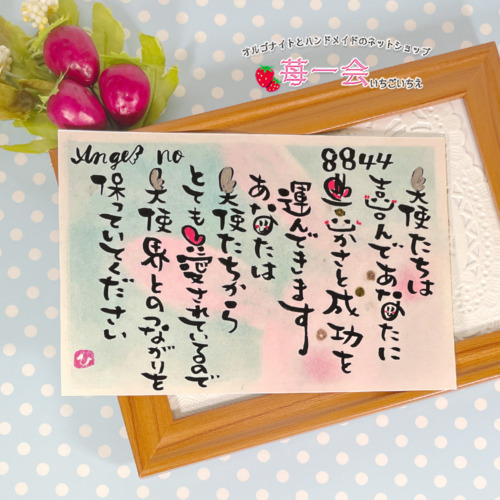 オルゴナイトとハンドメイドのネットショップ
苺一会
いちごいちえ
Angel no
8844
天使たちは
喜んであなたに
豊かさと成功を
運んできます
あなたは
天使たちから
とても愛されているので
天使界とのつながりを
保っていてください